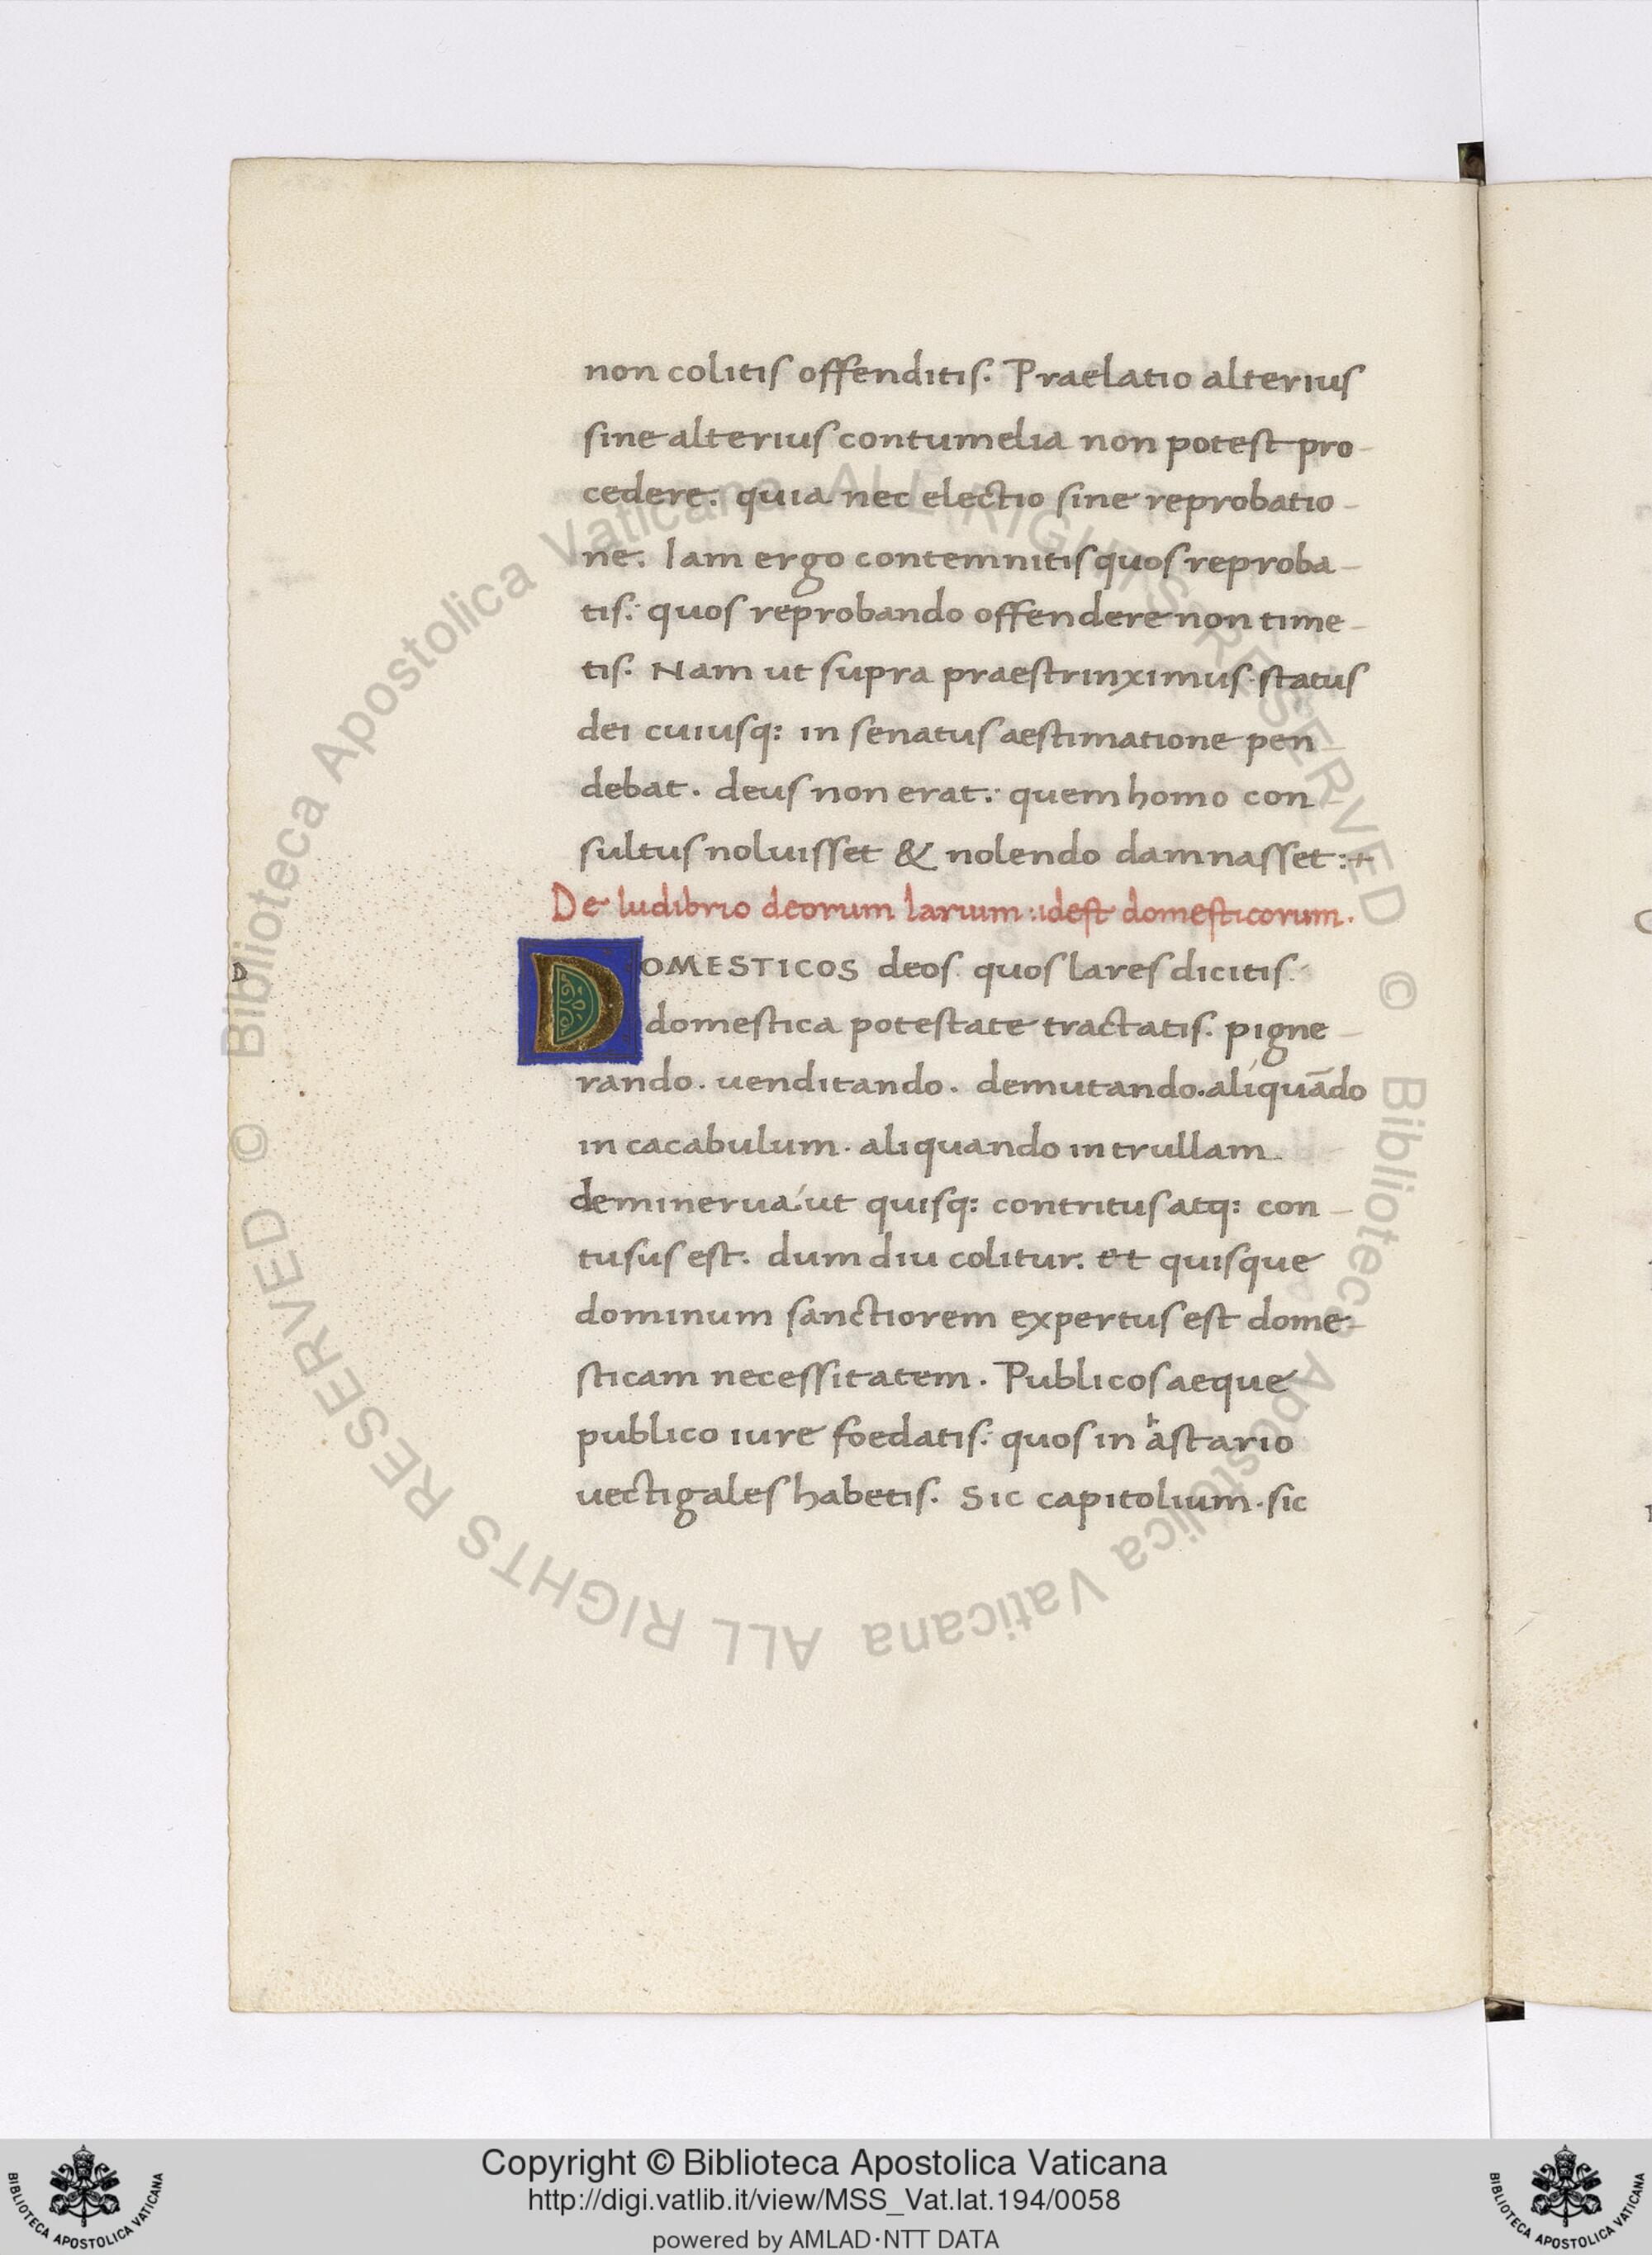 non colitis offenditis. Praelatio alterius
sine alterius contumelia non potest pro-
cedere. quia nec electio sine reprobatio-
ne. Iam ergo contemnitis quos reproba-
tis: quos reprobando offendere non time-
tis. Nam ut supra praestrinximus. status
dei cuiusq: in senatus aestimatione pen-
debat. deus non erat: quem homo con-
sultus noluisset & nolendo damnasset:+
De ludibrio deorum larium: idest domesticorum.
D
DOMESTICOS deos quos lares dicitis.
domestica potestate tractatis. pigne-
rando. uenditando. demutando. aliquādo
in cacabulum. aliquando in trullam
deminerua: ut quisq: contritus atq: con-
tusus est. dum diu colitur. et quisque
dominum sanctiorem expertus est dome-
sticam necessitatem. Publicos aeque
publico iure foedatis: quos in hastario
uectigales habetis. Sic capitolium. sic
© Biblioteca Apostolica Vaticana ALL RIGHTS RESERVED
© Biblioteca Apostolica Vaticana ALL RIGHTS RESERVED
Copyright © Biblioteca Apostolica Vaticana
http://digi.vatlib.it/view/MSS_Vat.lat.194/0058
powered by AMLAD·NTT DATA
BIBLIOTECA APOSTOLICA VATICANA
BIBLIOTECA APOSTOLICA VATICANA